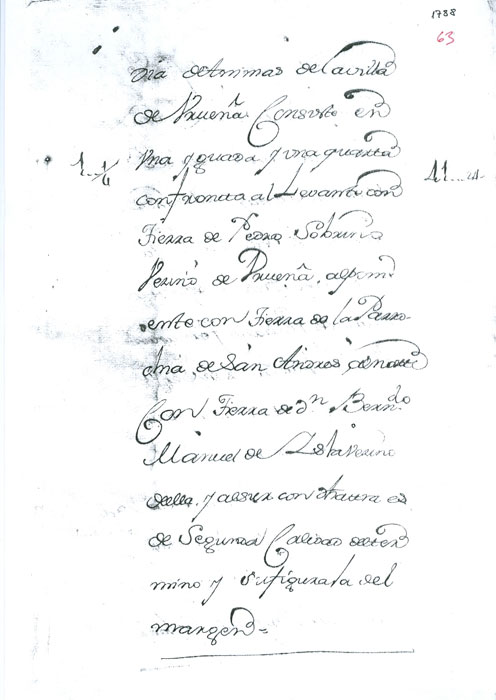 1788
63
ria de Animas de la villa
de Urueña Consiste en
Una yguada y una quarta
1 1/4
11
confronta al Levante con
Tierra de Pedro Sobrino
Vezino de Urueña, al poni
ente con Tierra de la Parro
chia de San Andres al norte
Con Tierra de Dn Berndo
Manuel de
della y al sur con otra es
de Segunda Calidad del ter
mino y su figura la del
margen =